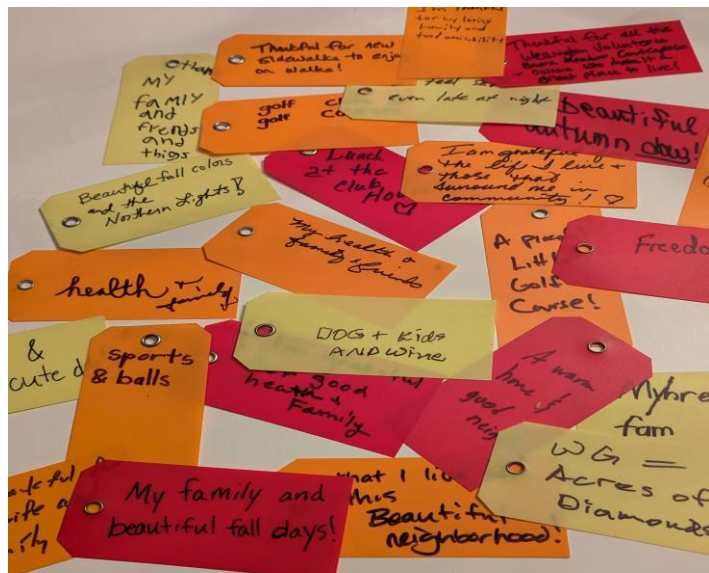 MY
family
and
friends
and
things
Thankful for new
sidewalks to enjoy
on walks!
I'm thankful
for my loving
family and
Thankful for all the
Volunteers
great place to live!
golf
golf
even late at night
beautiful
autumn day!
Beautiful fall colors
and the
Northern Lights!
Lunch
at the
club
I am grateful
the life I live +
those that
suround me in
community!
health +
family
My health +
family + friends
A
Littl
Golf
Course!
Freedo
&
cute d
sports
& balls
DOG + Kids
AND Wine
good
health +
Family
A warm
home &
good
neig
Mybre
fam
WG =
Acres of
Diamonds
My family and
beautiful fall days!
that I live
this
Beautiful
neighborhood!